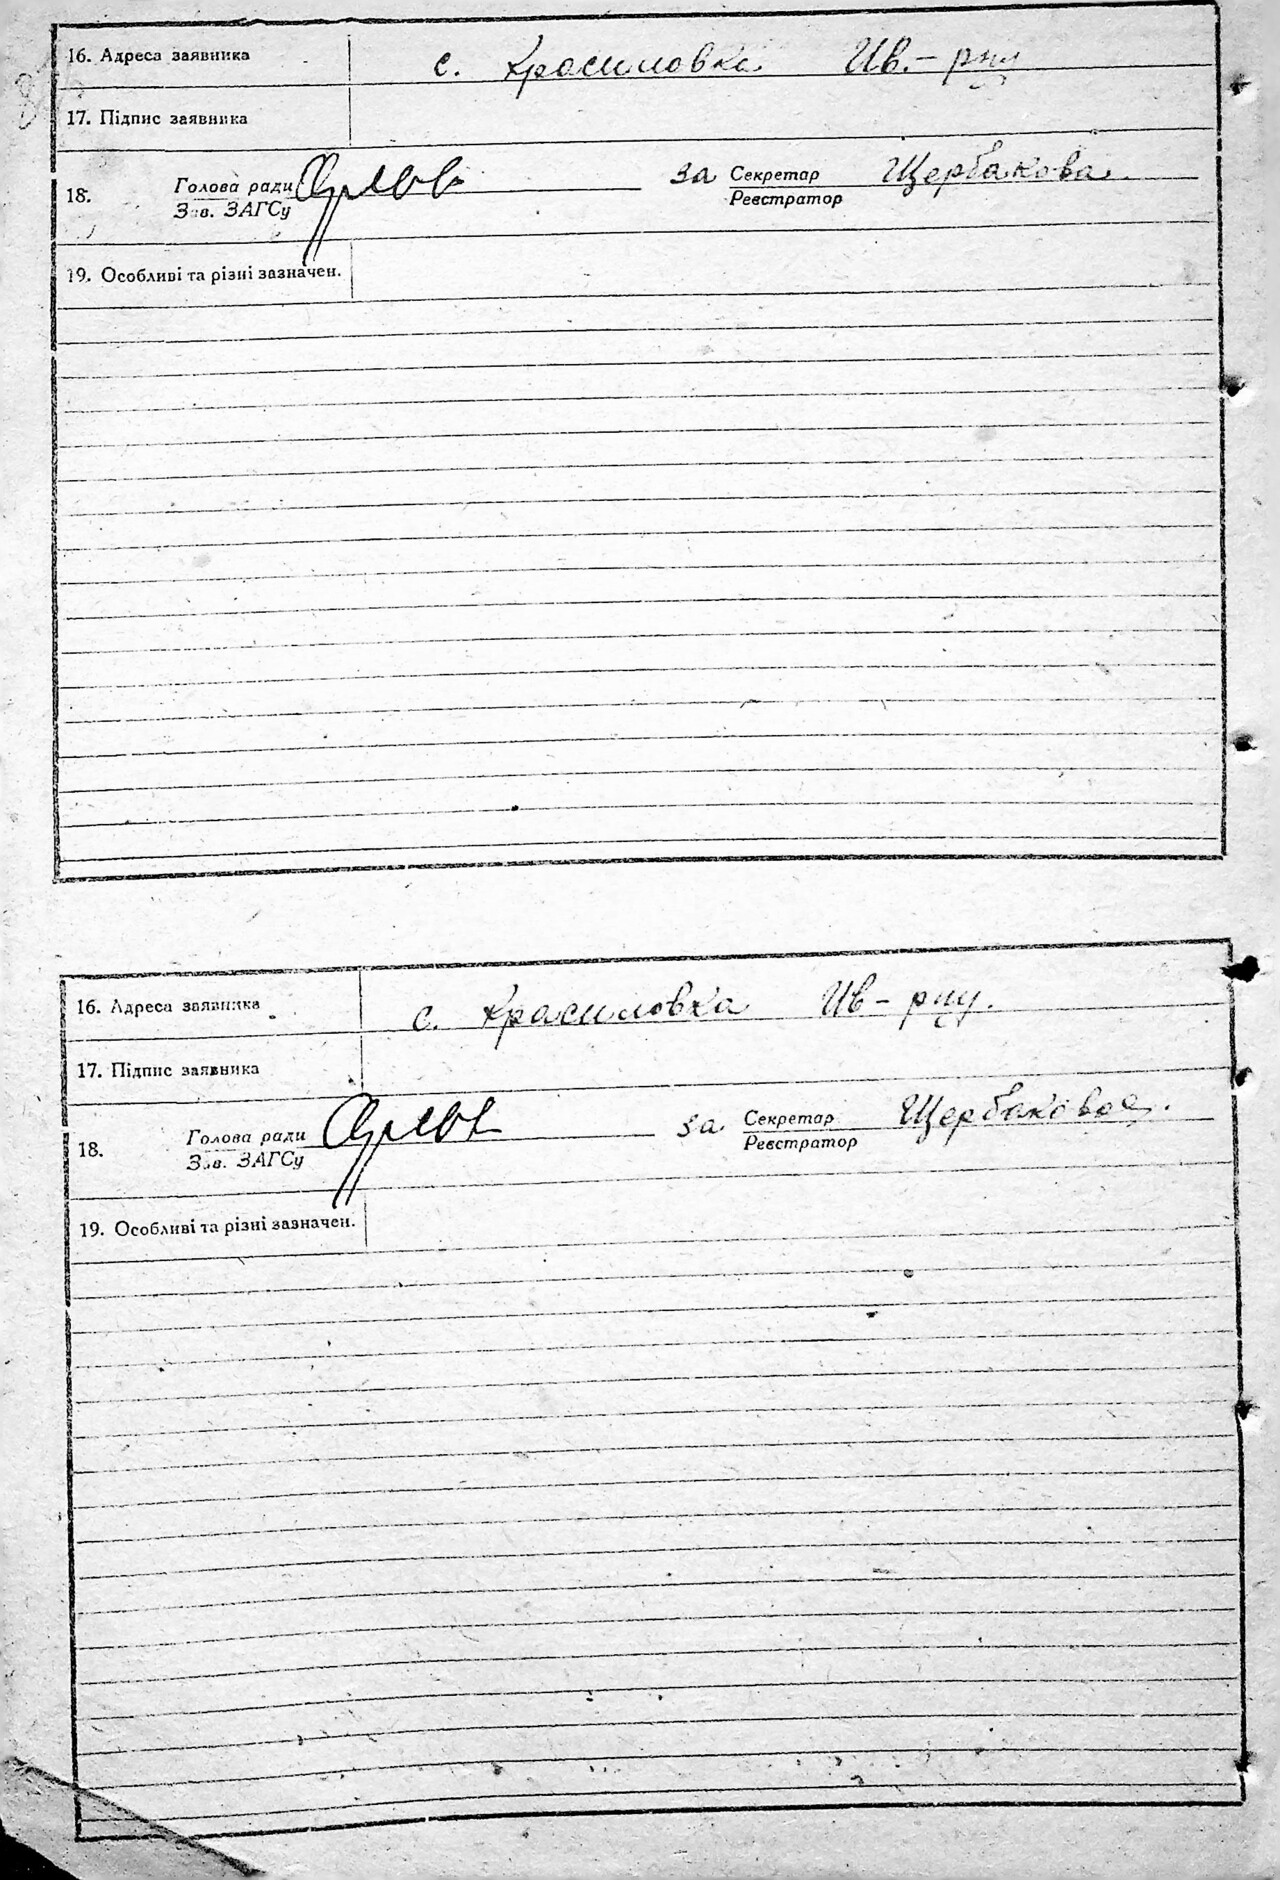 16. Адреса заявника с. Красиловка Ив.-рну
17. Підпис заявника
18. Голова ради за Секретар Щербакова.
Зав. ЗАГСу Реєстратор
19. Особливі та різні зазначен.
16. Адреса заявника с. Красиловка Ив-рну.
17. Підпис заявника
18. Голова ради за Секретар Щербакова.
Зав. ЗАГСу Реєстратор
19. Особливі та різні зазначен.